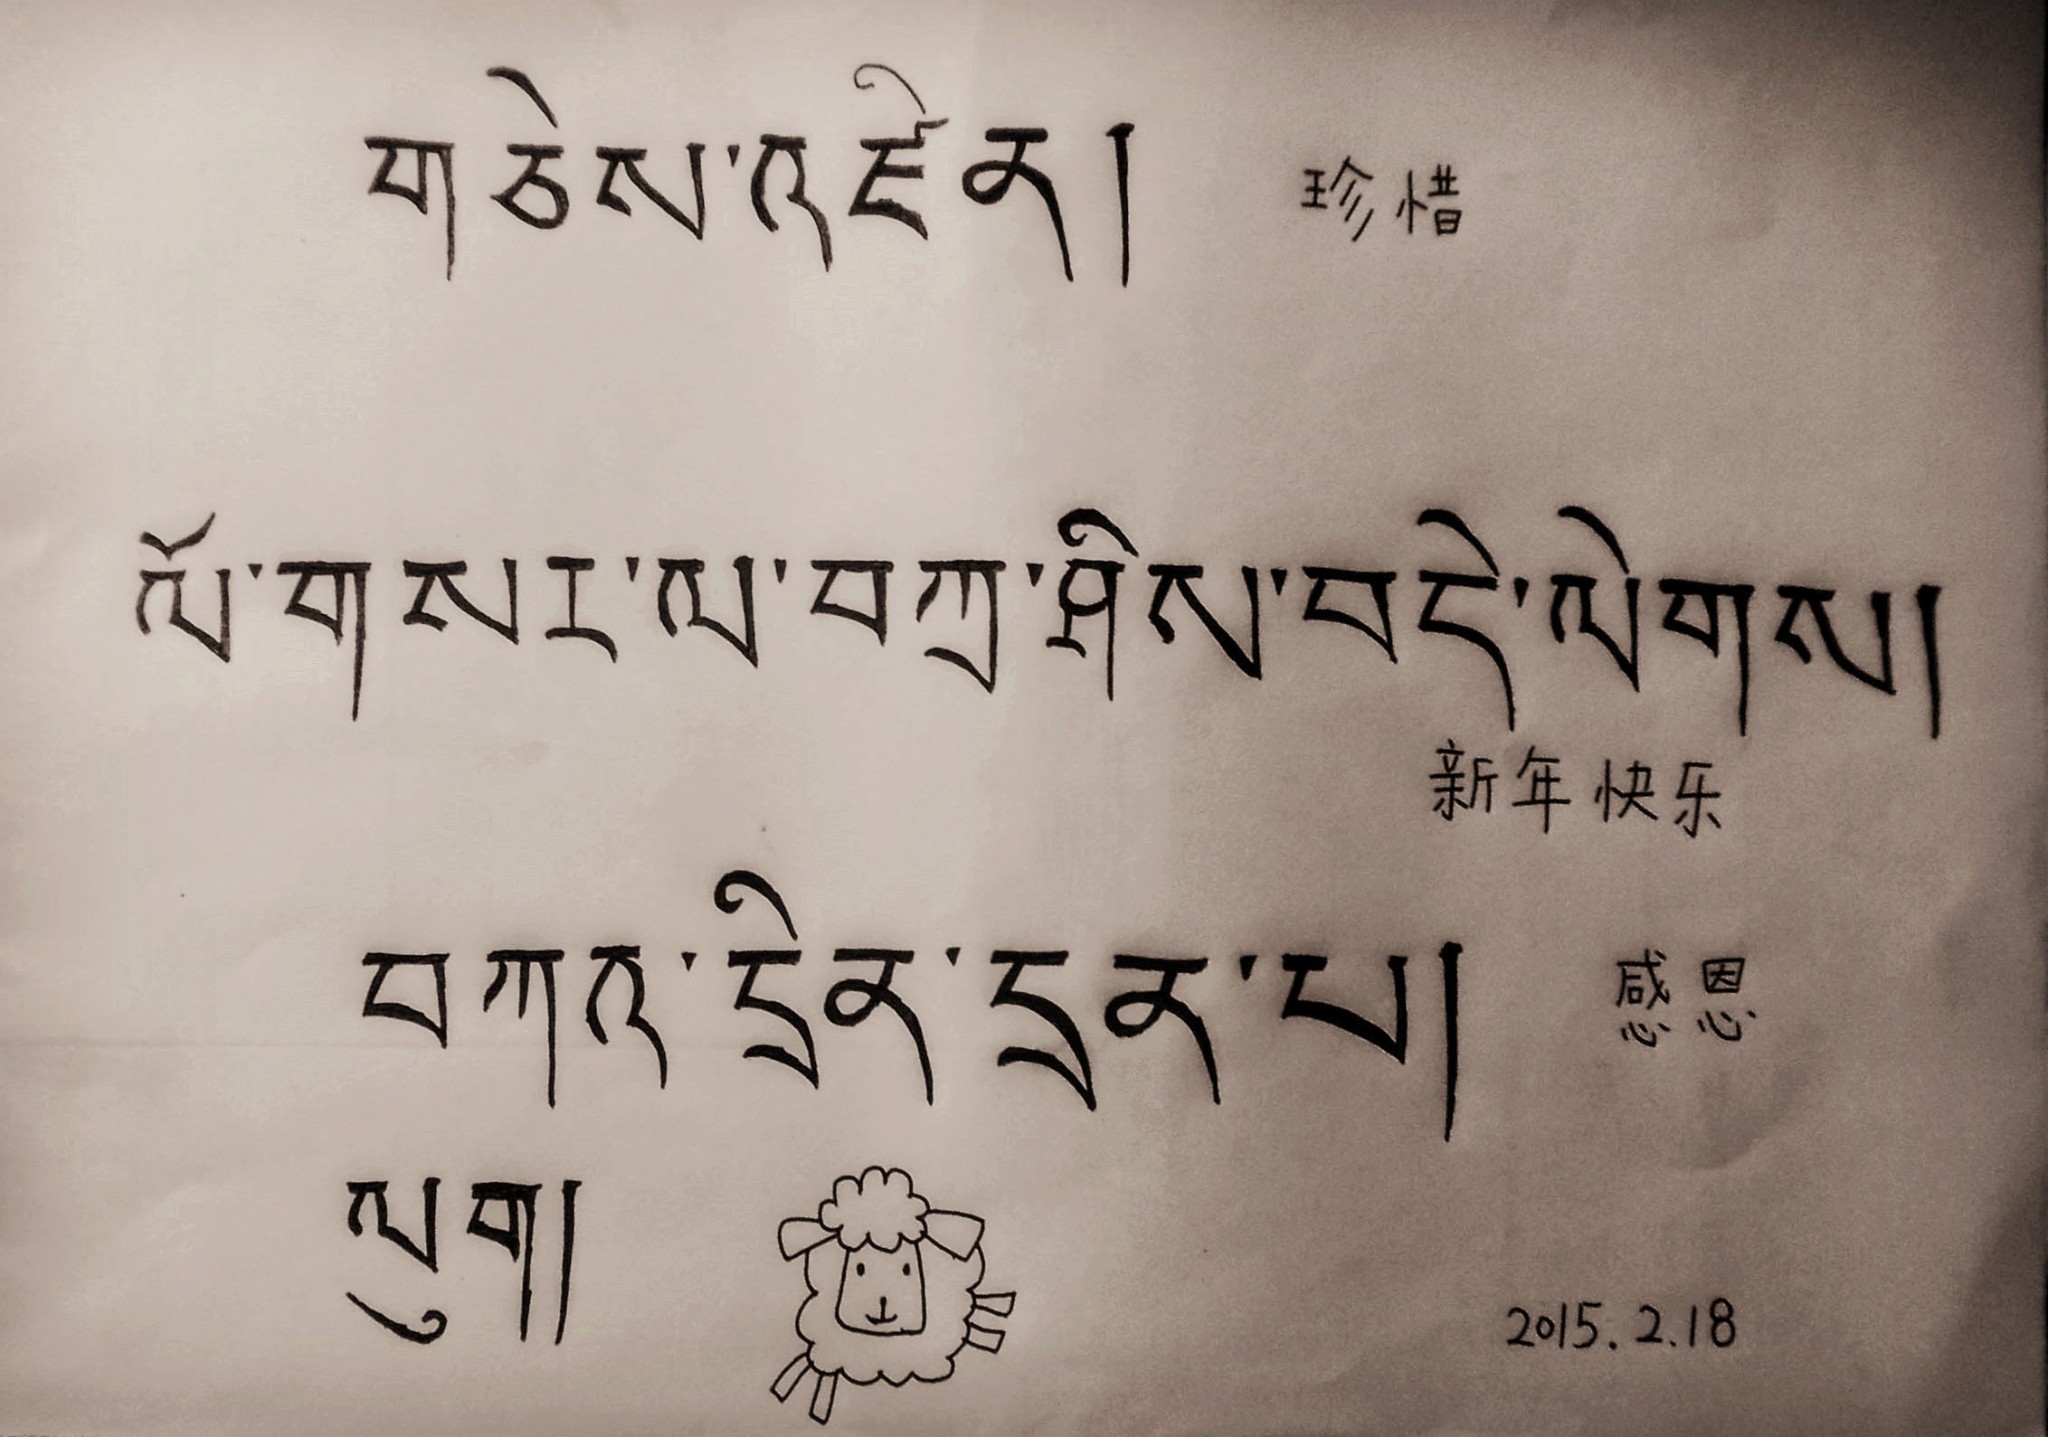 གཅེས་འཛིན། 珍惜
ལོ་གསར་ལ་བཀྲ་ཤིས་བདེ་ལེགས།
新年快乐
བཀའ་དྲིན་དྲན་པ། 感恩
ལུག།
2015.2.18